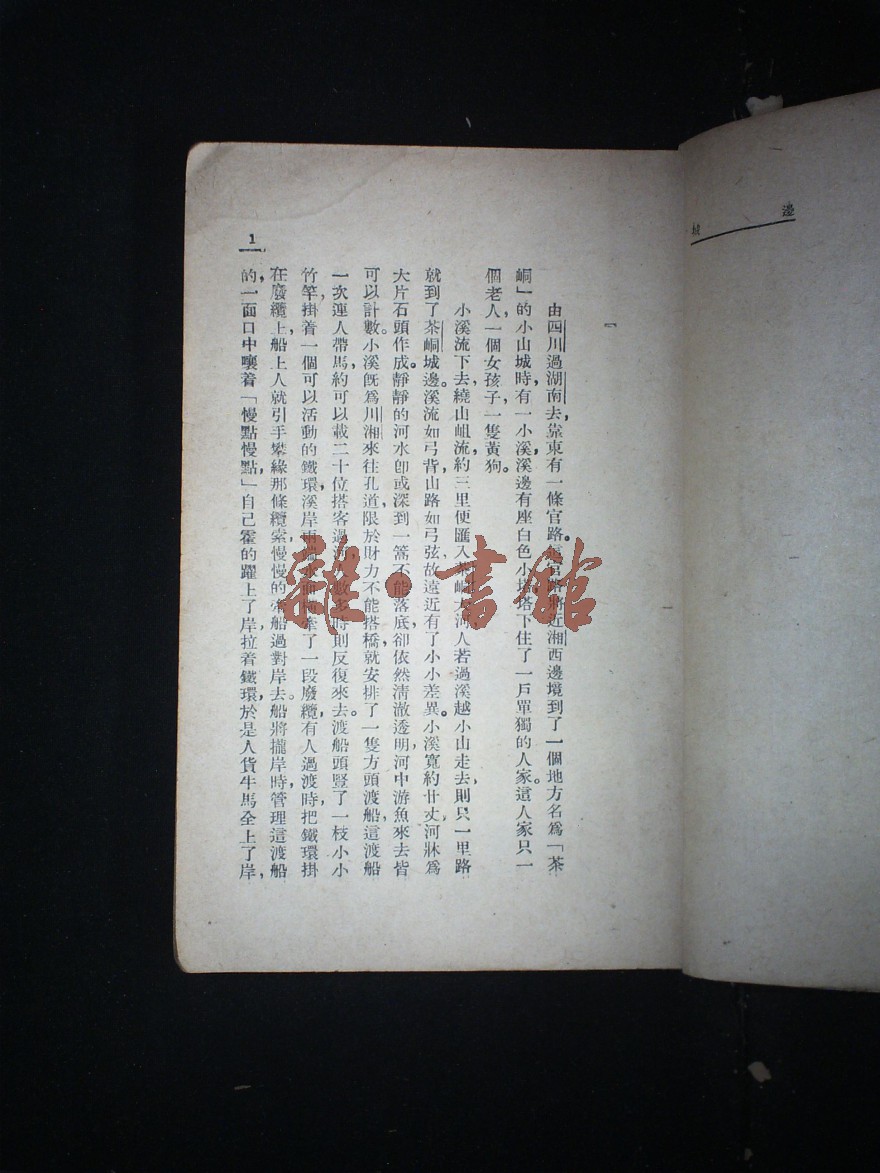 邊城
一
由四川過湖南去，靠東有一條官路。官路將近湘西邊境到了一個地方名爲「茶
峒」的小山城時，有一小溪，溪邊有座白色小塔，塔下住了一戶單獨的人家。這人家只一
個老人，一個女孩子，一隻黃狗。
小溪流下去，繞山岨流，約三里便匯入茶峒大河，人若過溪越小山走去，則只一里路
就到了茶峒城邊。溪流如弓背，山路如弓弦，故遠近有了小小差異。小溪寬約廿丈，河牀爲
大片石頭作成。靜靜的河水卽或深到一篙不能落底，卻依然清澈透明，河中游魚來去皆
可以計數。小溪旣爲川湘來往孔道，限於財力不能搭橋，就安排了一隻方頭渡船。這渡船
一次連人帶馬，約可以載二十位搭客過河，人數多時則反復來去。渡船頭豎了一枝小小
竹竿，掛着一個可以活動的鐵環，溪岸兩端水面牽了一段廢纜，有人過渡時，把鐵環掛
在廢纜上，船上人就引手攀緣那條纜索，慢慢的牽船過對岸去。船將攏岸時，管理這渡船
的，一面口中嚷着「慢點慢點」自己霍的躍上了岸，拉着鐵環，於是人貨牛馬全上了岸，
1
雜·書館